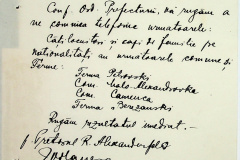 Conf. Ord. Prefecturii, vă rugăm a
ne comunica telefonic urmatoarele:
Cati locuitori si capi de familie pe
nationalităti au urmatoarele comune si
Ferme:
Ferma Petrovski
Com. Malo Alexandrovka
Com. Camenca
Ferma Berzanski
Rugăm rezultatul imediat.
Pretorul R. Alexanderfeld